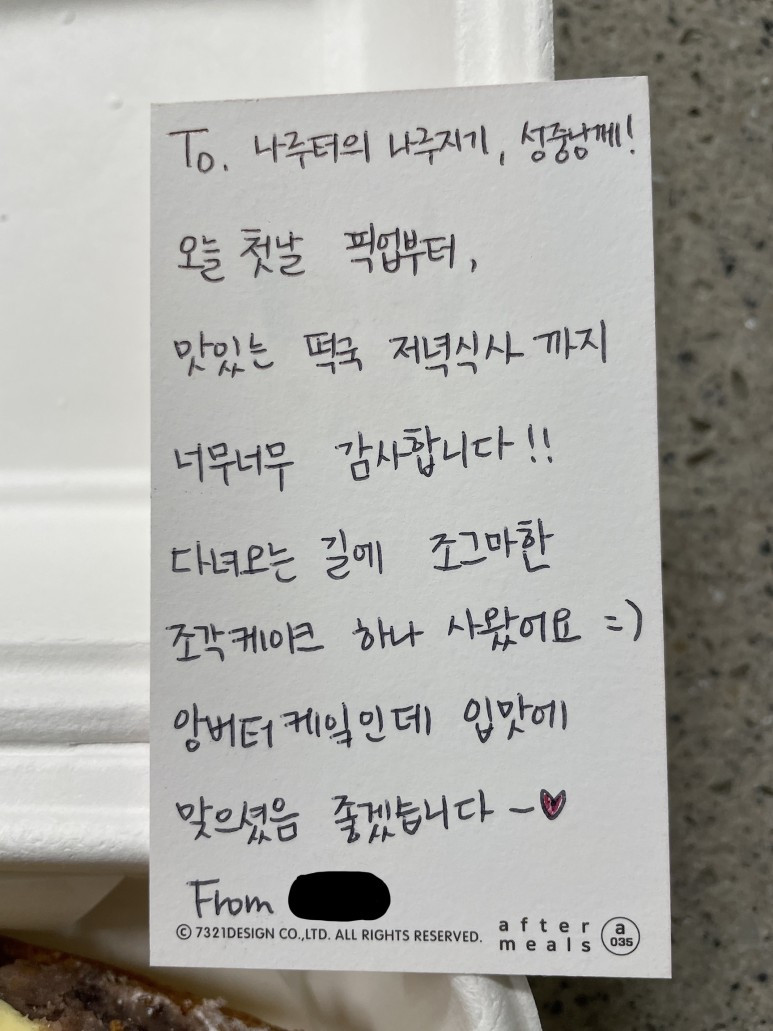 To. 나루터의 나루지기, 성중님께!
오늘 첫날 픽업부터,
맛있는 떡국 저녁식사 까지
너무너무 감사합니다!!
다녀오는 길에 조그마한
조각케이크 하나 사왔어요 =)
앙버터케잌인데 입맛에
맞으셨음 좋겠습니다~♥
From
© 7321DESIGN CO.,LTD. ALL RIGHTS RESERVED.
after
meals
a
035